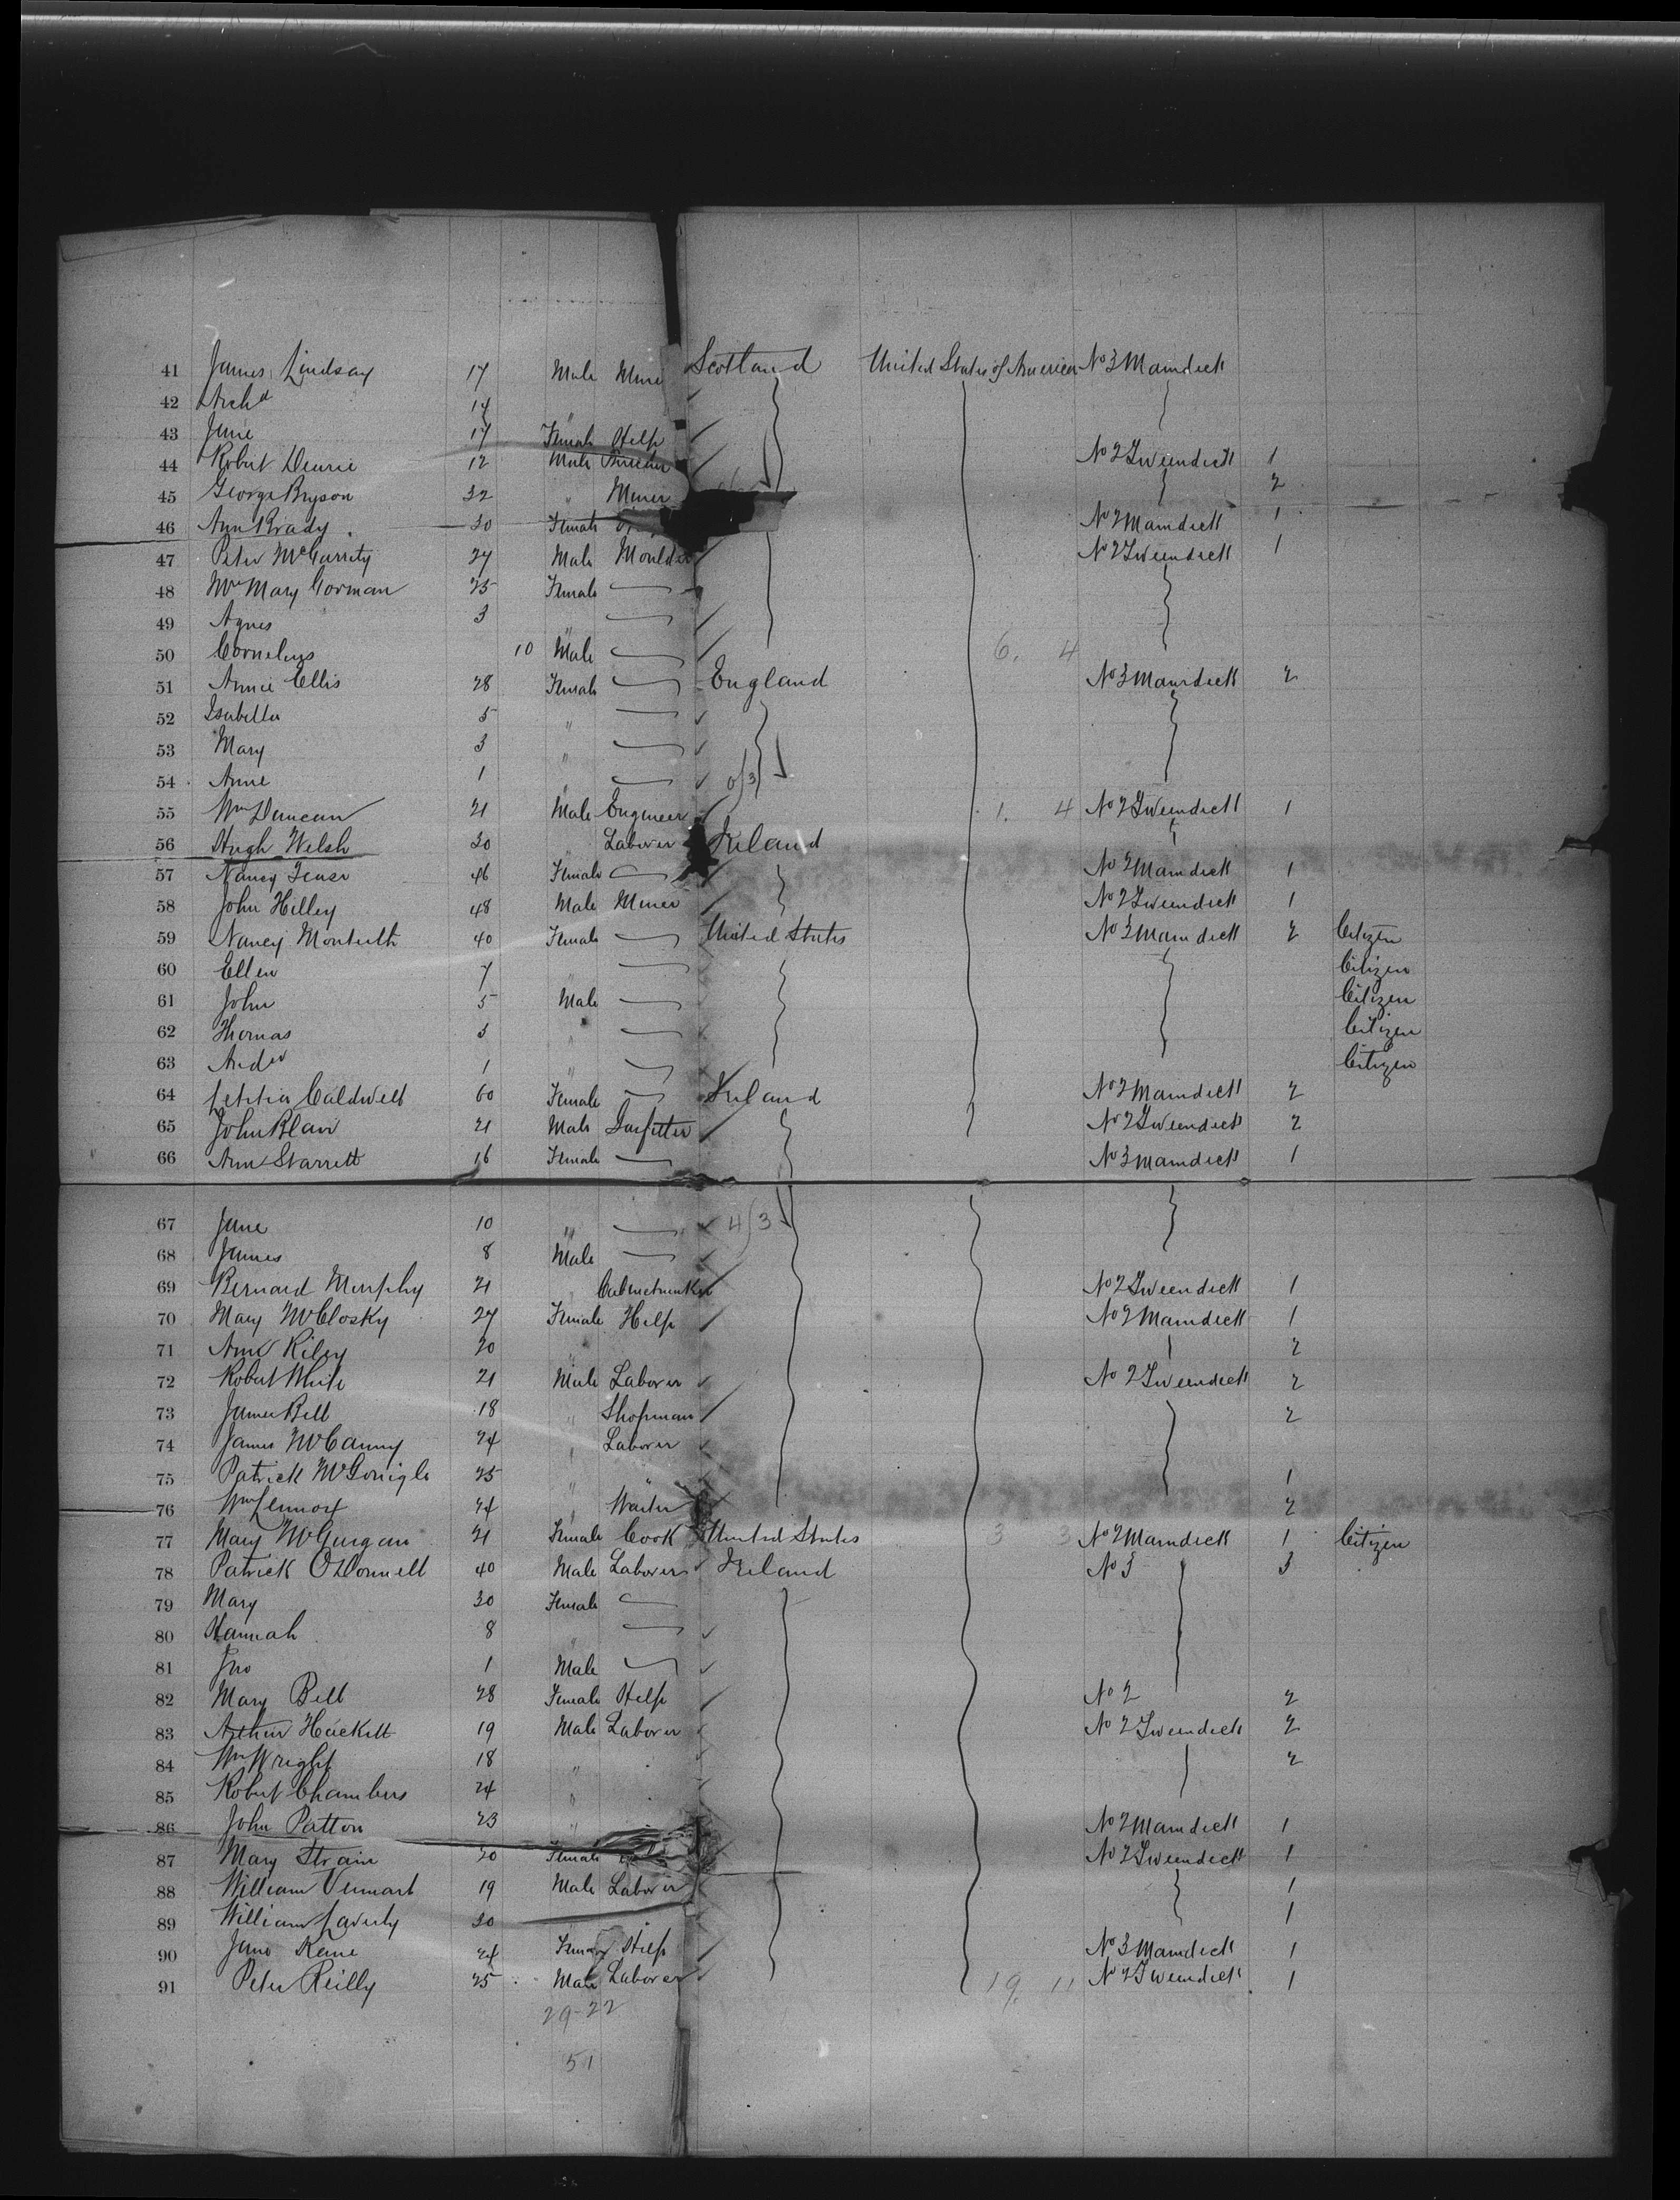 41 James Lindsay 17 Male Mine Scotland United States of America No 3 Maindeck
42 Archd 14 "
43 Jane 17 Female Help
44 Robert 12 Male No 2 Tweendeck 1
45 George Bryson 32 " Miner 2
46 Ann Brady 30 Female No 2 Maindeck 1
47 Peter McGarrity 27 Male Moulder No 2 Tweendeck 1
48 Mrs Mary Gorman 25 Female —
49 Agnes 3 " —
50 Cornelius 10 Male — 6. 4
51 Annie Ellis 28 Female — England No 3 Maindeck 2
52 Isabella 5 " —
53 Mary 3 " —
54 Anne 1 " — 0/3
55 Wm Duncan 21 Male Engineer 1. 4 No 2 Tweendeck 1
56 Hugh Welsh 30 Laborer Ireland
57 Nancy 46 Female — No 2 Maindeck 1
58 John Hilley 48 Male Miner No 2 Tweendeck 1
59 Nancy Monteith 40 Female — United States No 3 Maindeck 2 Citizen
60 Ellen 7 — Citizen
61 John 5 Male — Citizen
62 Thomas 3 " — Citizen
63 Andw 1 " — Citizen
64 Letitia Caldwell 60 Female — Ireland No 2 Maindeck 2
65 John Blair 21 Male Gasfitter No 2 Tweendeck 2
66 Ann Starrett 16 Female — No 3 Maindeck 1
67 Jane 10 " — 4/3
68 James 8 Male —
69 Bernard Murphy 21 Cabinetmaker No 2 Tweendeck 1
70 Mary McClosky 27 Female Help No 2 Maindeck 1
71 Ann Riley 20 " 2
72 Robert White 21 Male Laborer No 2 Tweendeck 2
73 James Bell 18 " Shopman 2
74 James McCanny 24 " Laborer
75 Patrick McGonigle 25 " " 1
76 Wm Lennox 24 " Waiter 2
77 Mary McGurgan 21 Female Cook United States 3 3 No 2 Maindeck 1 Citizen
78 Patrick O'Donnell 40 Male Laborer Ireland No 3 3
79 Mary 30 Female —
80 Hannah 8 " —
81 Jno 1 Male —
82 Mary Bell 28 Female Help No 2 2
83 Arthur Hackett 19 Male Laborer No 2 Tweendeck 2
84 Wm Wright 18 " 2
85 Robert Chambers 24 "
86 John Patton 23 " No 2 Maindeck 1
87 Mary Strain 20 Female No 2 Tweendeck 1
88 William Vennart 19 Male Laborer 1
89 William Laverty 30 1
90 Jane Kane 24 Female Help No 3 Maindeck 1
91 Peter Reilly 25 Male Laborer 19. 11 No 2 Tweendeck 1
29-22
51